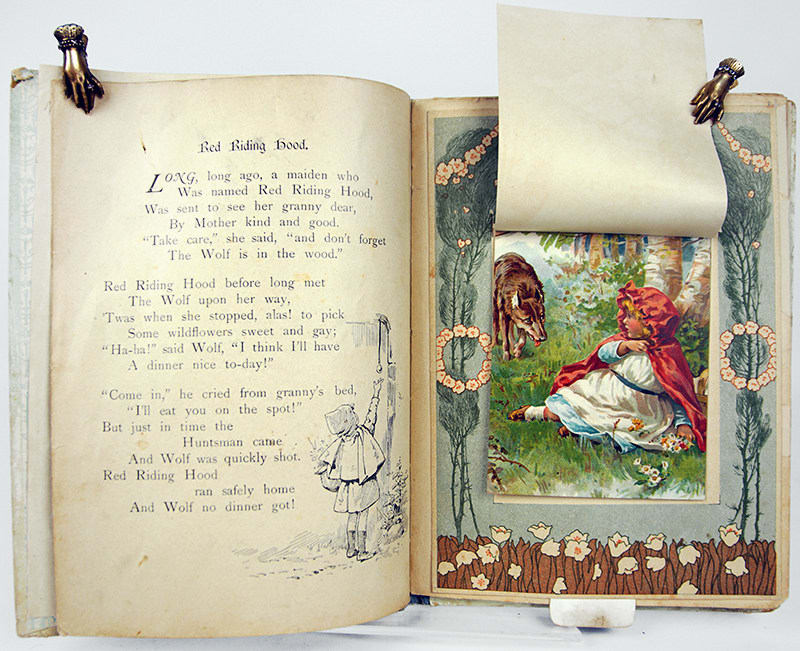 Red Riding Hood.
LONG, long ago, a maiden who
Was named Red Riding Hood,
Was sent to see her granny dear,
By Mother kind and good.
"Take care," she said, "and don't forget
The Wolf is in the wood."
Red Riding Hood before long met
The Wolf upon her way,
'Twas when she stopped, alas! to pick
Some wildflowers sweet and gay;
"Ha-ha!" said Wolf, "I think I'll have
A dinner nice to-day!"
"Come in," he cried from granny's bed,
"I'll eat you on the spot!"
But just in time the
Huntsman came
And Wolf was quickly shot.
Red Riding Hood
ran safely home
And Wolf no dinner got!